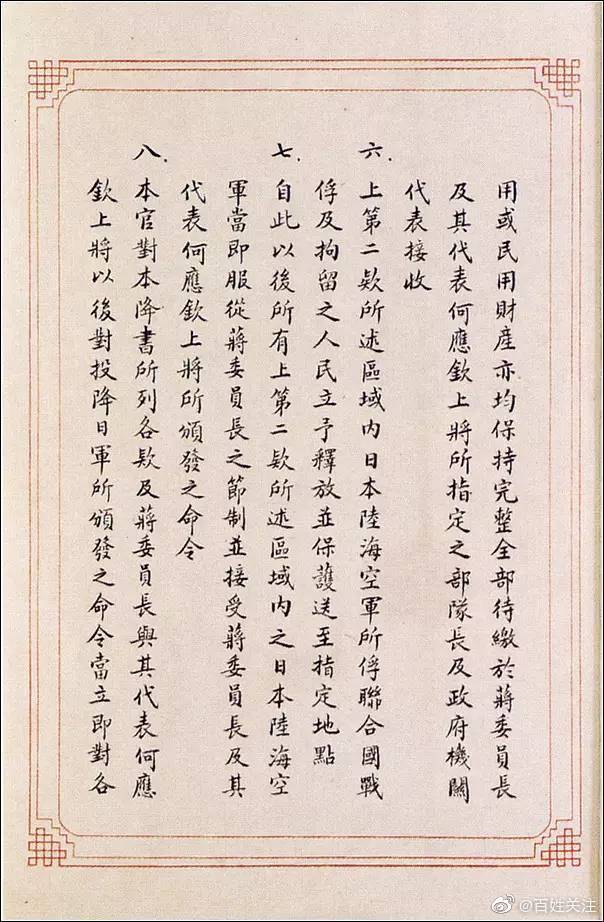 用或民用財產亦均保持完整全部待繳於蔣委員長
及其代表何應欽上將所指定之部隊長及政府機關
代表接收
六.上第二欵所述區域内日本陸海空軍所俘聯合國戰
俘及拘留之人民立予釋放並保護送至指定地點
七.自此以後所有上第二欵所述區域内之日本陸海空
軍當即服從蔣委員長之節制並接受蔣委員長及其
代表何應欽上將所頒發之命令
八.本官對本降書所列各欵及蔣委員長與其代表何應
欽上將以後對投降日軍所頒發之命令當立即對各
@百姓关注